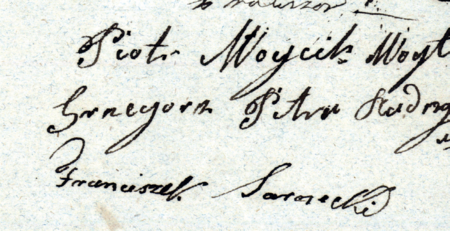 Piotr Woycik Woyt
Grzegorz Piter
Franciszek Sarnecki